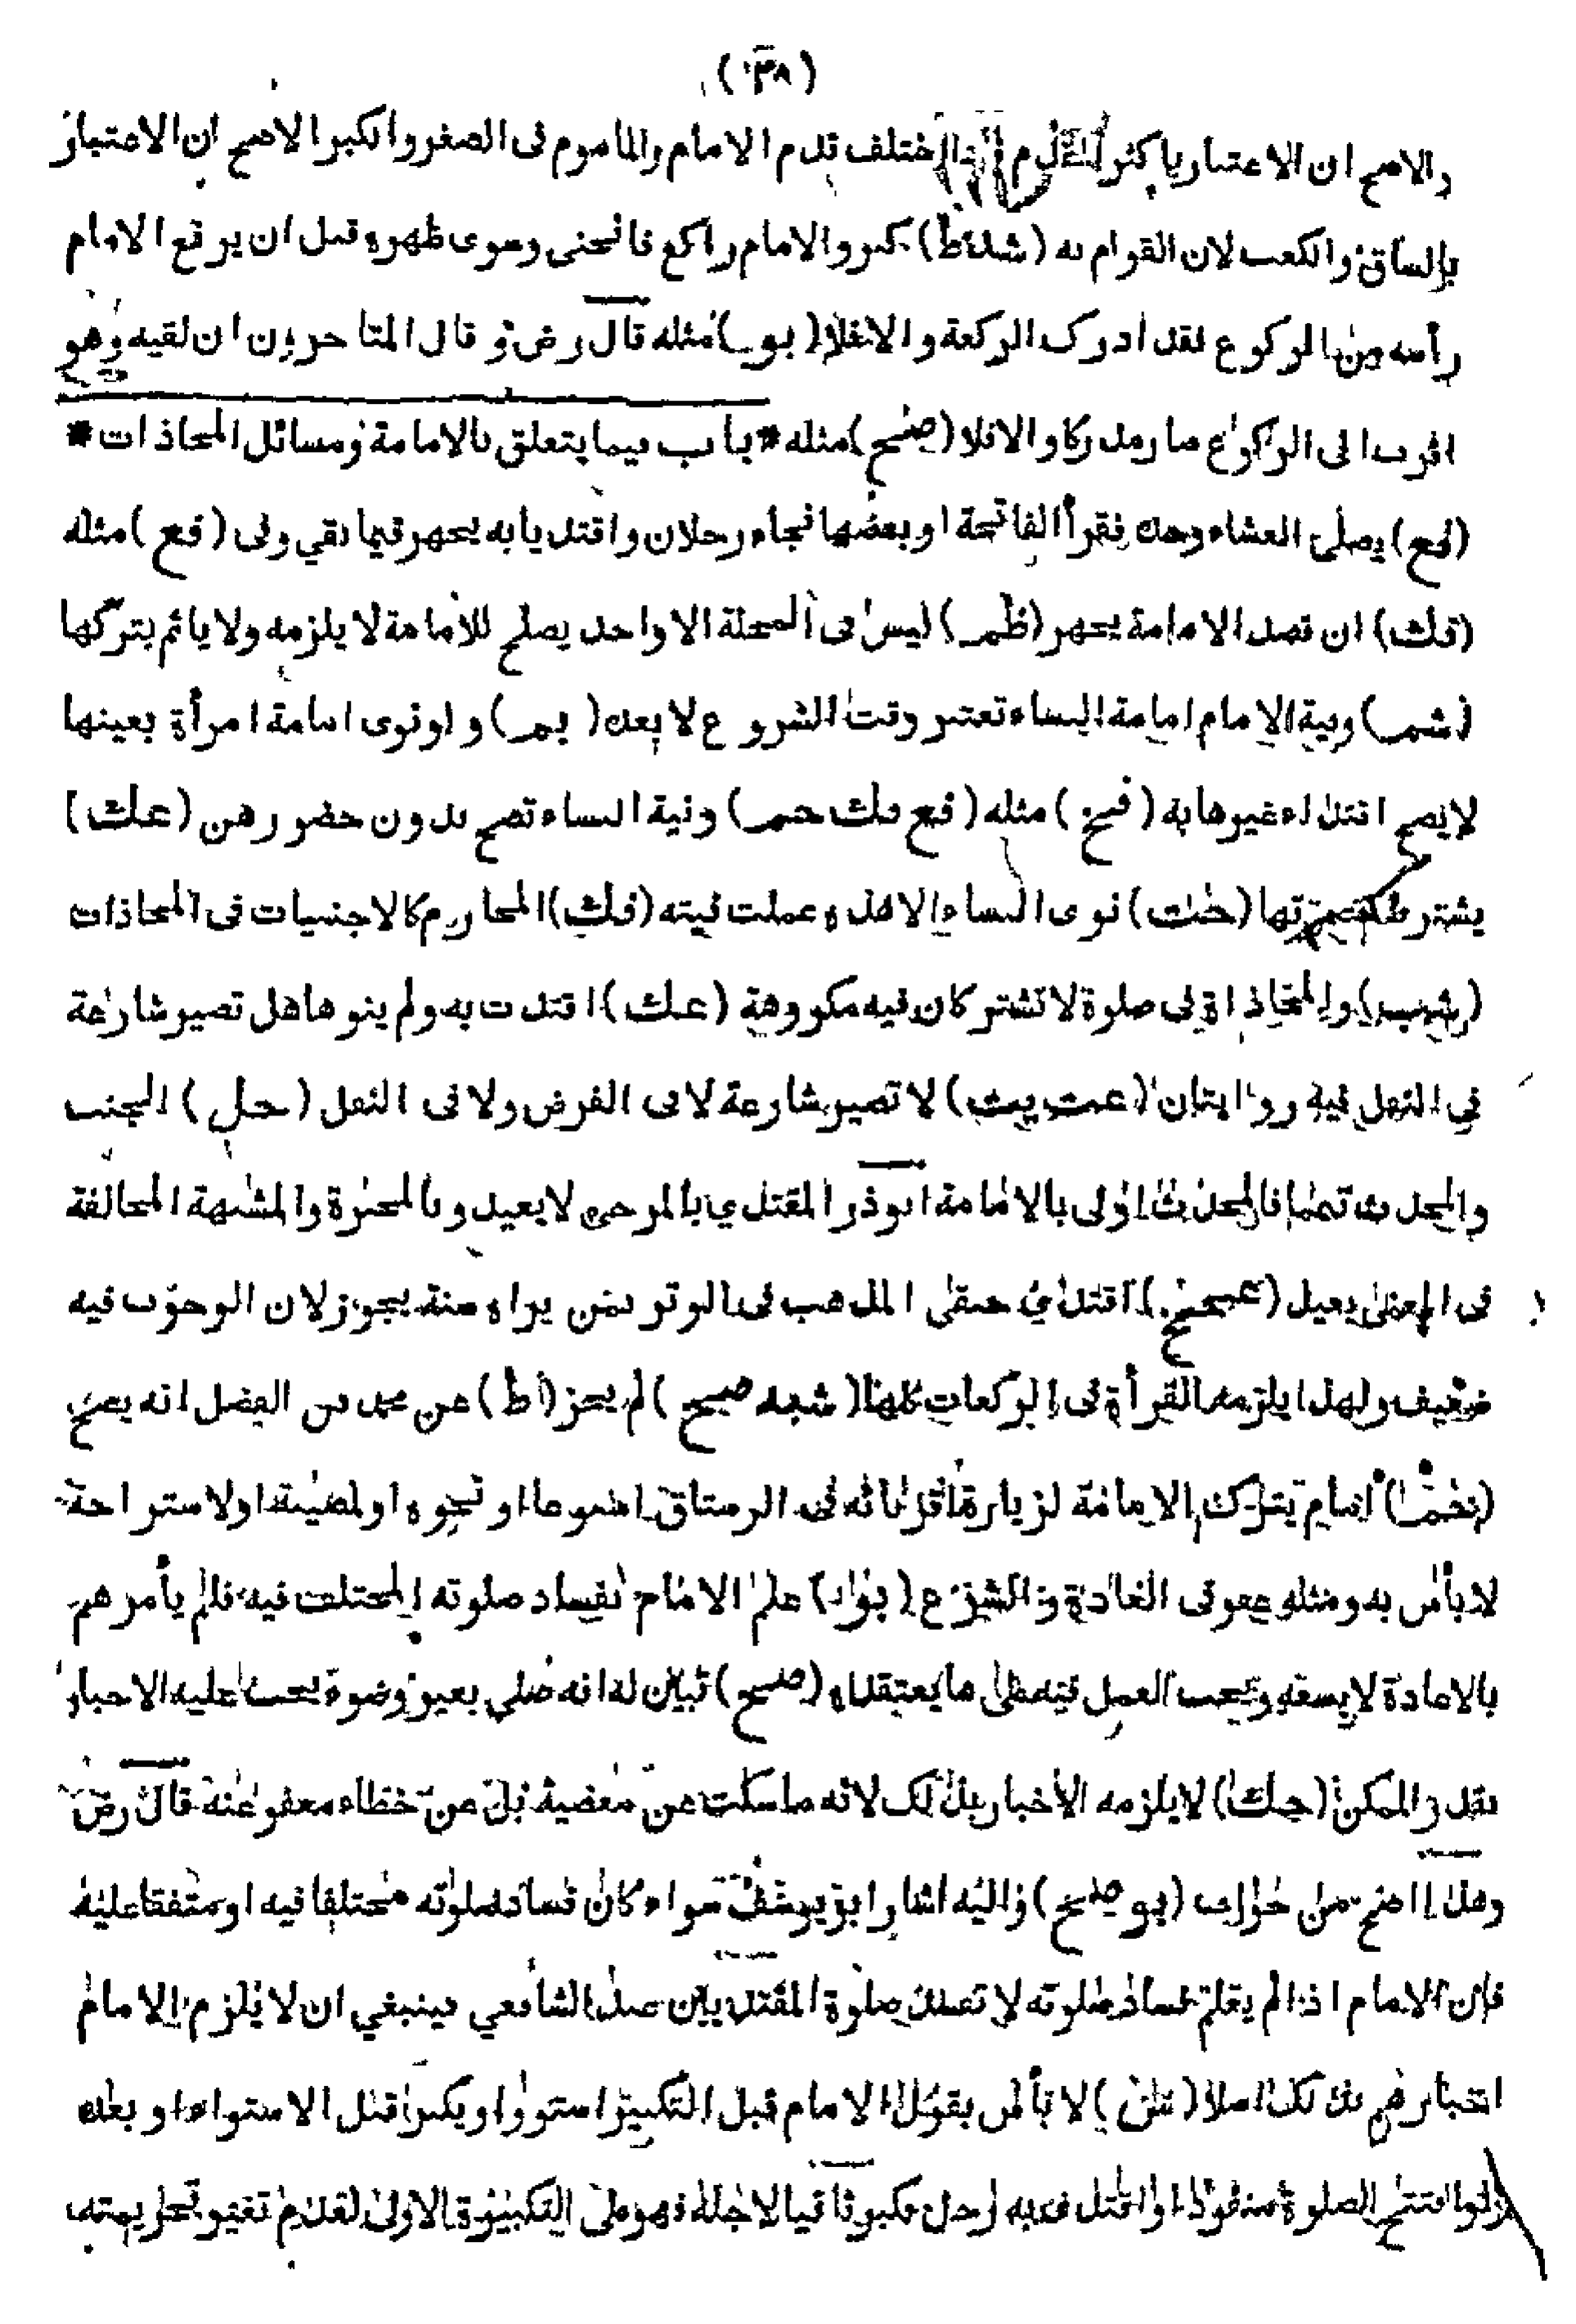 (٣٨)
والاصح ان الاعتبار باكثر القدم اختلف قدم الامام والماموم فى الصغر والكبر الاصح ان الاعتبار
بالساق والكعب لان القوام به (شط) كبر والامام راكع فانحنى وسوى ظهره قبل ان يرفع الامام
رأسه من الركوع فقد ادرك الركعة والافلا (بو) مثله قال رض وقال المتاخرون ان لقيه وهو
اقرب الى الركوع صار مدركا والافلا (صح) مثله * باب فيما يتعلق بالامامة ومسائل المحاذات *
(فع) يصلى العشاء وحده فقرأ الفاتحة او بعضها فجاء رجلان واقتديا به يجهر فيما بقي وفى (فع) مثله
(فك) ان قصد الامامة يجهر (ظم) ليس فى المحلة الا واحد يصلح للامامة لا يلزمه ولا يأثم بتركها
(شم) ونية الامام امامة النساء تعتبر وقت الشروع لا بعده (بم) ولو نوى امامة امرأة بعينها
لا يصح اقتداء غيرها به (فخ) مثله (فع فك حم) ونية النساء تصح بدون حضورهن (عك)
يشترط حضرتها (خك) نوى النساء الا هذه عملت نيته (فك) المحارم كالاجنبيات فى المحاذات
(شب) والمحاذاة فى صلوة لا تشتركان فيه مكروهة (عك) اقتدت به ولم ينوها هل تصير شارعة
فى النفل فيه روايتان (عت يت) لا تصير شارعة لا فى الفرض ولا فى النفل (حل) الجنب
والمحدث تيمما فالمحدث اولى بالامامة ابوذر المقتدي بالمرجى لا يعيد وبالمجبرة والمشبهة المخالفة
فى المعنى يعيد اقتدى حنفى المذهب فى الوتر بمن يراه سنة يجوز لان الوجوب فيه
ضعيف ولهذا يلزمه القرأة فى الركعات كلها (شبه صح) لم يجز (اط) عن محمد بن الفضل انه يصح
امام يترك الامامة لزيارة اقربائه فى الرستاق اسبوعا او نحوه او لمصيبة او لاستراحة
لا بأس به ومثله عفو فى العادة والشرع (بو) علم الامام بفساد صلوته المختلف فيه فلم يأمرهم
بالاعادة لا يسعه ويجب العمل فيه على ما يعتقده (صح) تبين له انه صلى بغير وضوء يجب عليه الاخبار
بقدر الممكن (جك) لا يلزمه الاخبار بذلك لانه ما سكت عن معصية بل عن خطاء معفو عنه قال رض
وهذا اصح من جواب (بو صح) واليه اشار ابو يوسف سواء كان فساد صلوته مختلفا فيه او متفقا عليه
فان الامام اذا لم يعلم فساد صلوته لا تبطل صلوة المقتديين عند الشافعي فينبغي ان لا يلزم الامام
اخبارهم بذلك اصلا لا بأس بقول الامام قبل التكبير استووا ويكبر قبل الاستواء او بعده
ولو افتتح الصلوة منفردا او اقتدى به رجل فكبر ثانيا لاجله فهو على التكبيرة الاولى لعدم تغير تحريمته